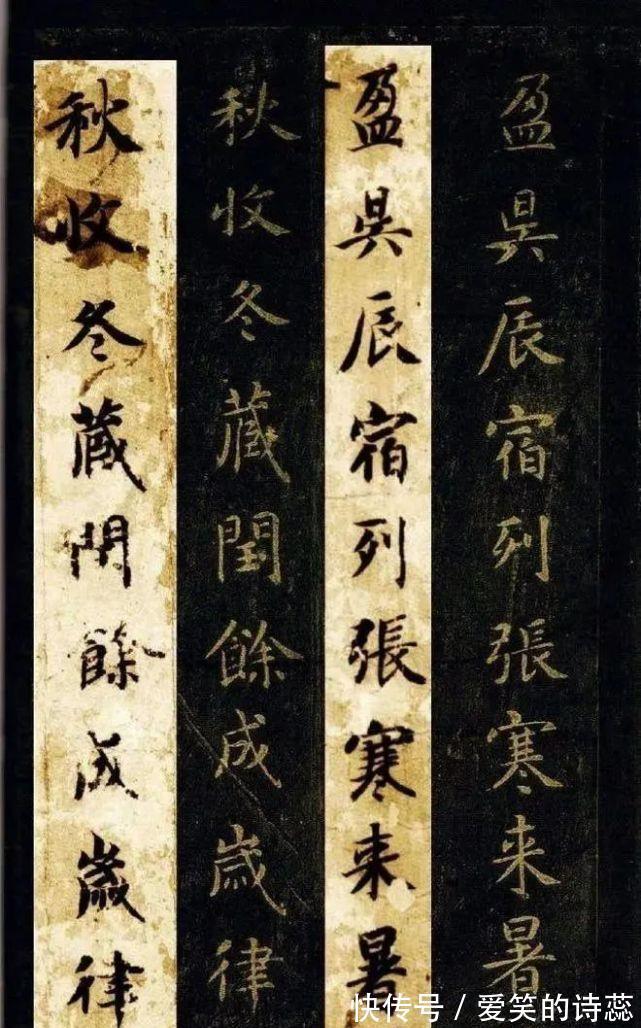 盈昃辰宿列張寒来暑
盈昃辰宿列張寒来暑
秋收冬藏閏餘成歲律
秋收冬藏閏餘成歲律
快传号 / 爱笑的诗蕊